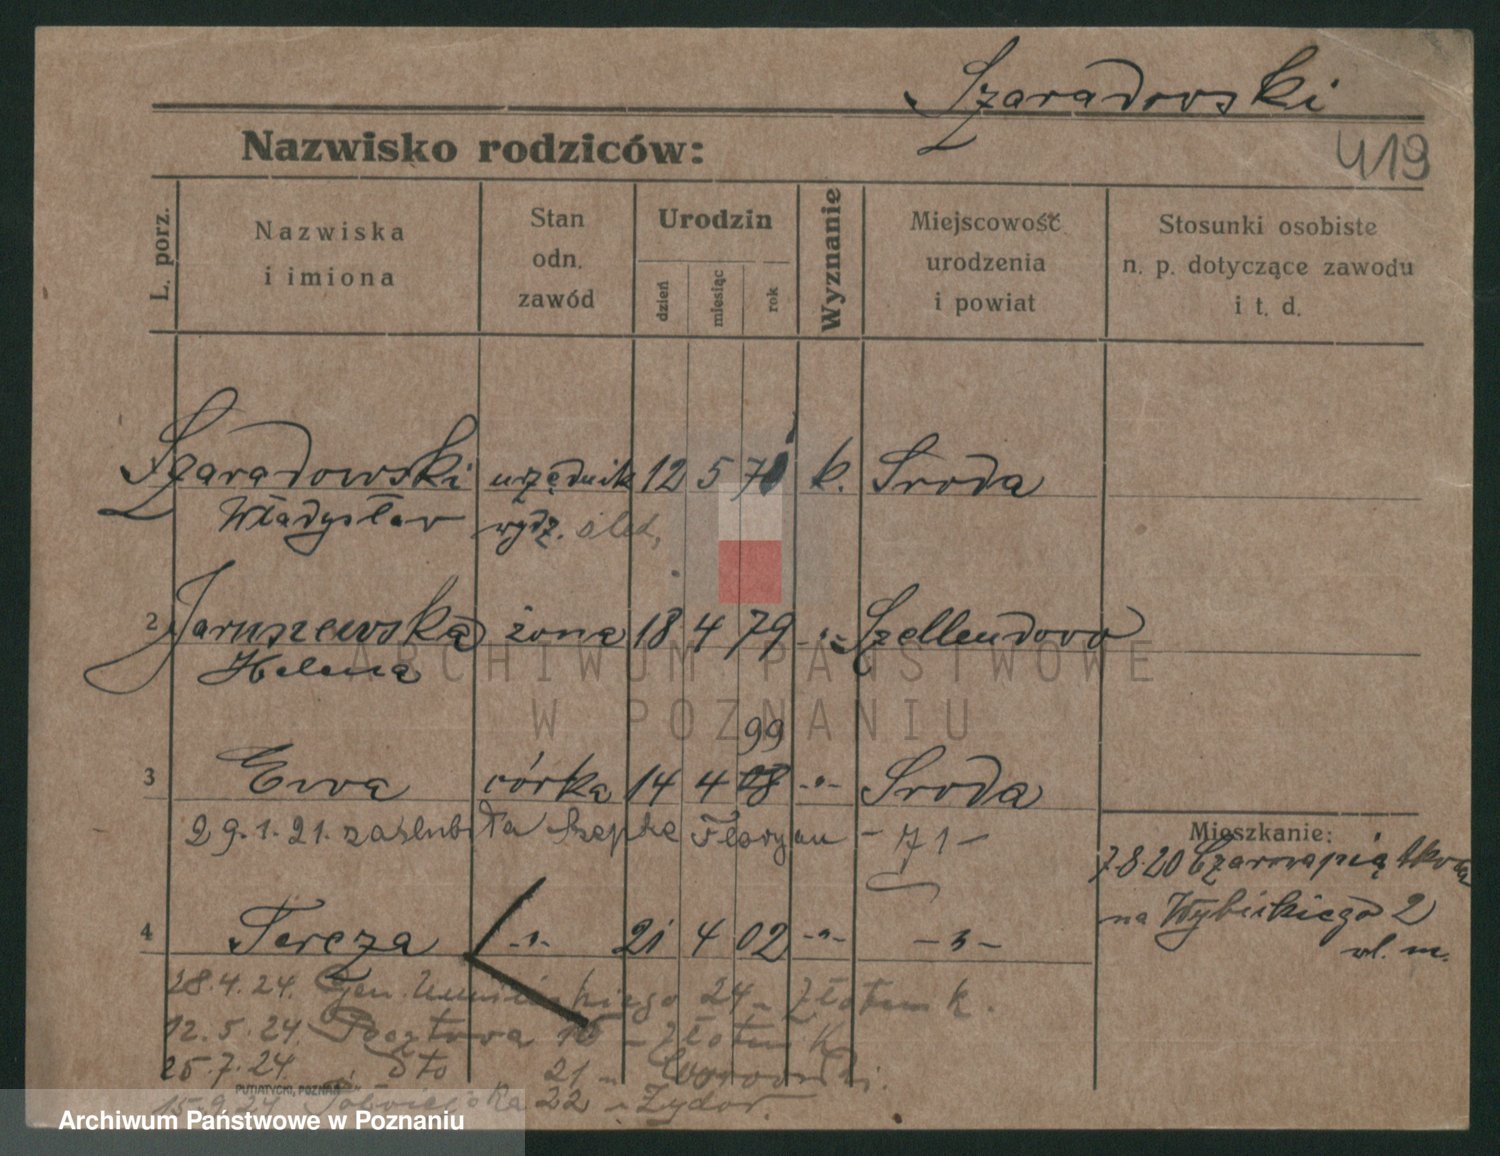 Szaradowski
419
Nazwisko rodziców:
L. porz.
Nazwiska
i imiona
Stan
odn.
zawód
Urodzin
dzień
miesiąc
rok
Wyznanie
Miejscowość
urodzenia
i powiat
Stosunki osobiste
n. p. dotyczące zawodu
i t. d.
Szaradowski urzędnik 12 5 k. Sroda
Władysław wydz. śled,
2 Jaruszewska żona 18 4 79 -"- Szellendovo
Helena
99
3 Ewa córka 14 4 08 -"- Sroda
29.1.21. zaślubiła Florjan - 71 -
Mieszkanie:
7.8.20
na Wybickiego 2
wl. m.
4 Tereza -"- 21 4 02 -"- -"-
28.4.24. Gen. Umińskiego 24 -
12.5.24. Pocztowa 15 -
25.7.24. Sto 21 -
PUTIATYCKI, POZNAŃ
15.9.24. 22 - Zydor.
ARCHIWUM PAŃSTWOWE
W POZNANIU
Archiwum Państwowe w Poznaniu